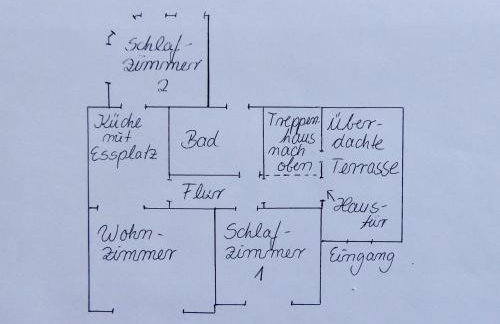 Schlaf-
zimmer
2
Küche
mit
Essplatz
Bad
Treppen
haus
nach
oben
Über-
dachte
Terrasse
Flur
Haus-
tür
Wohn-
zimmer
Schlaf-
zimmer
1
Eingang